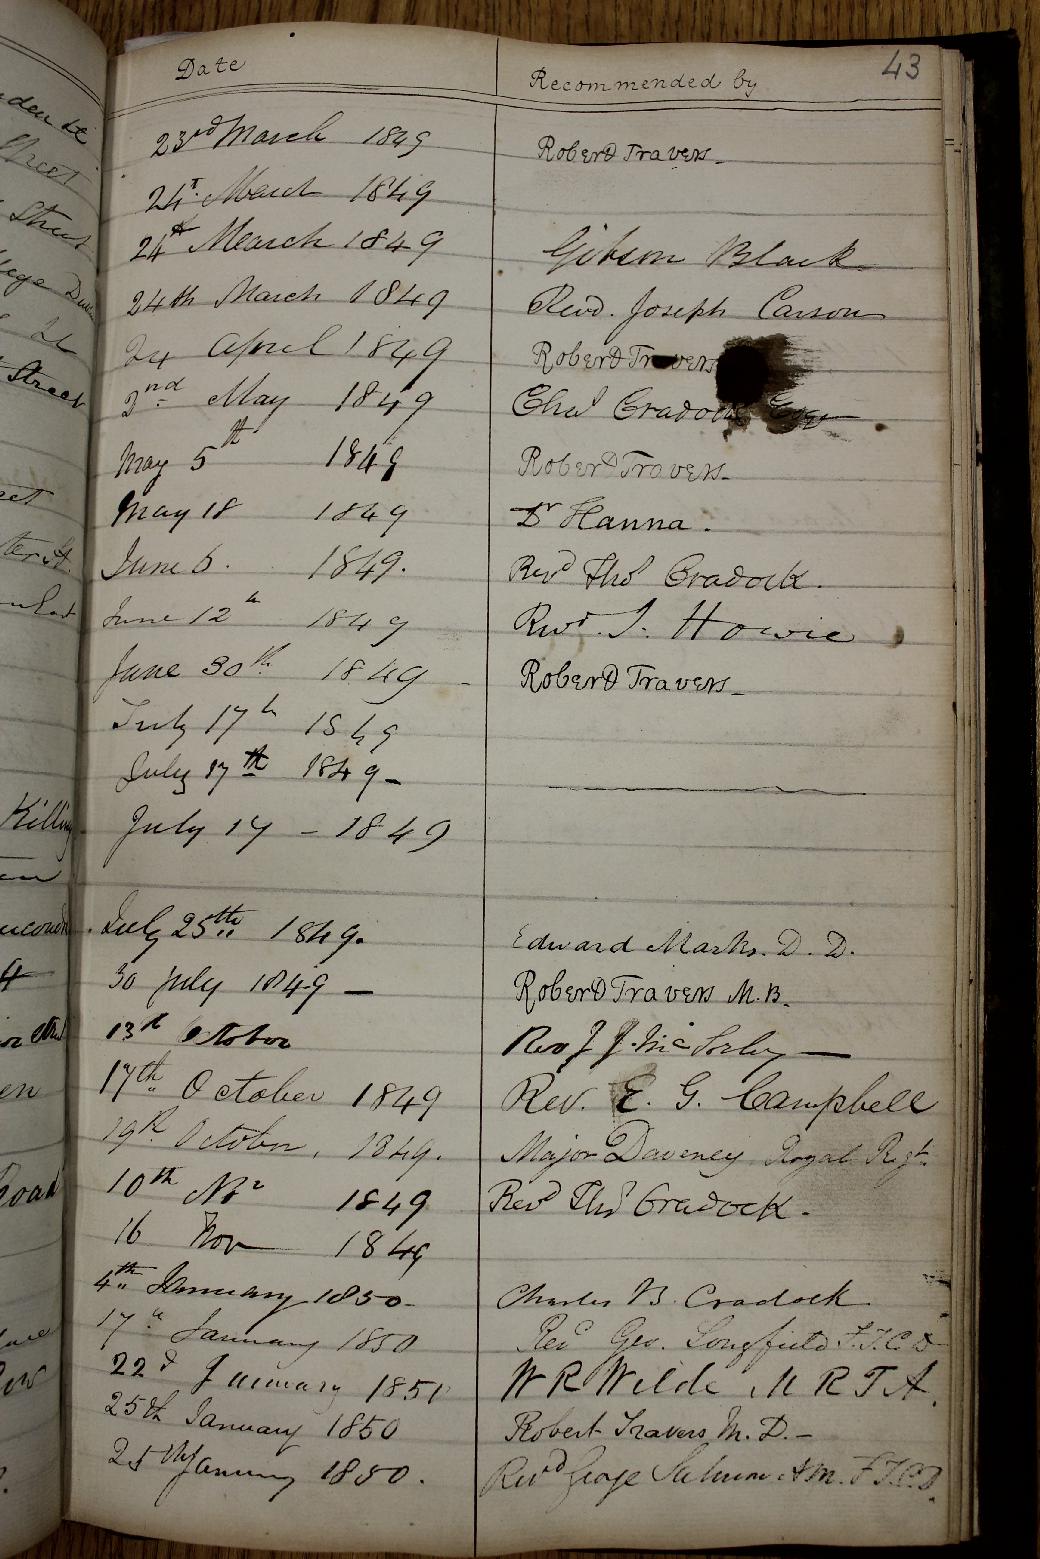 43
Date Recommended by
23rd March 1849 Robert Travers
24th March 1849
24th March 1849 Gibson Black
24th March 1849 Revd. Joseph Carson
24 April 1849 Robert Travers
2nd May 1849 Chas Cradock Esqr
May 5th 1849 Robert Travers
May 18 1849 Dr Hanna.
June 6. 1849. Revd Thos Cradock.
June 12th 1849 Revd. J. Howie
June 30th 1849 Robert Travers
July 17th 1849
July 17th 1849
July 17 - 1849
July 25th 1849. Edward Marks. D. D.
30 July 1849 Robert Travers M.B.
13th October Rev J J. McSorley
17th October 1849 Rev. E. G. Campbell
19th October, 1849. Major Daveney Royal Regt.
10th Nbr 1849 Revd Thos Cradock.
16 Nov 1849
4th January 1850 Charles B. Cradock
17th January 1850 Revd Geo. Longfield F.T.C.D
22d January 1851 W R Wilde M R I A.
25th January 1850 Robert Travers M.D.
25th January 1850. Revd George Salmon A.M. F.T.C.D.
Street
Street
Street
Killing
en
Road